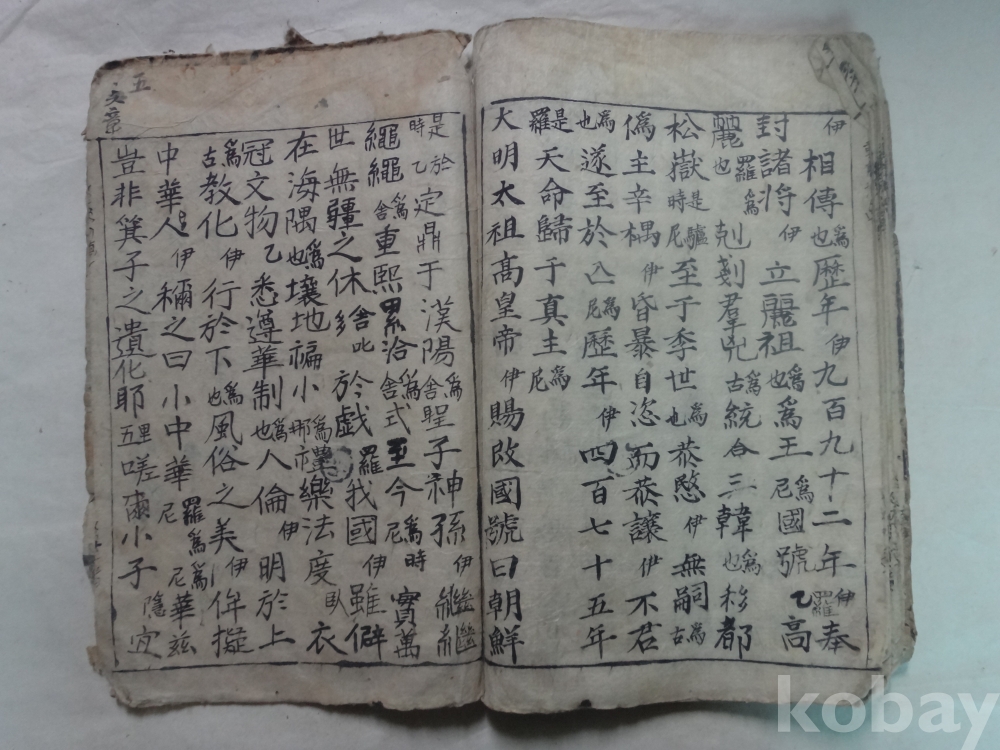 伊相傳爲也歷年伊九百九十二年伊羅奉
封諸將伊立麗祖爲也爲王爲尼國號乙高
麗羅爲也剋剗羣兇爲古統合三韓爲也移都
松嶽是驢時尼至于李世爲也恭愍伊無嗣爲古
僞主辛禑伊昏暴自恣而恭讓伊不君
爲也遂至於亾爲尼歷年伊四百七十五年
是羅天命歸于真主爲尼
大明太祖高皇帝伊賜改國號曰朝鮮
是於時乙定鼎于漢陽爲舍聖子神孫伊繼繼
繩繩爲舍重熙累洽爲舍式至今爲時尼實萬
世無疆之休舍叱多於戱羅我國伊雖僻
在海隅爲也壤地褊小爲那禮樂法度臥衣
冠文物乙悉遵華制爲也人倫伊明於上
爲古教化伊行於下爲也風俗之美伊侔擬
中華人伊稱之曰小中華羅爲尼爲尼華兹
豈非箕子之遺化耶五里嗟爾小子隱宜
五
文章
kobay